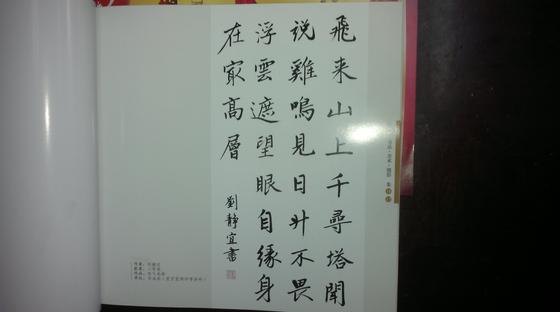 飛来山上千尋塔聞
说雞鳴見日升不畏
浮雲遮望眼自緣身
在㝡高層
劉靜宜書